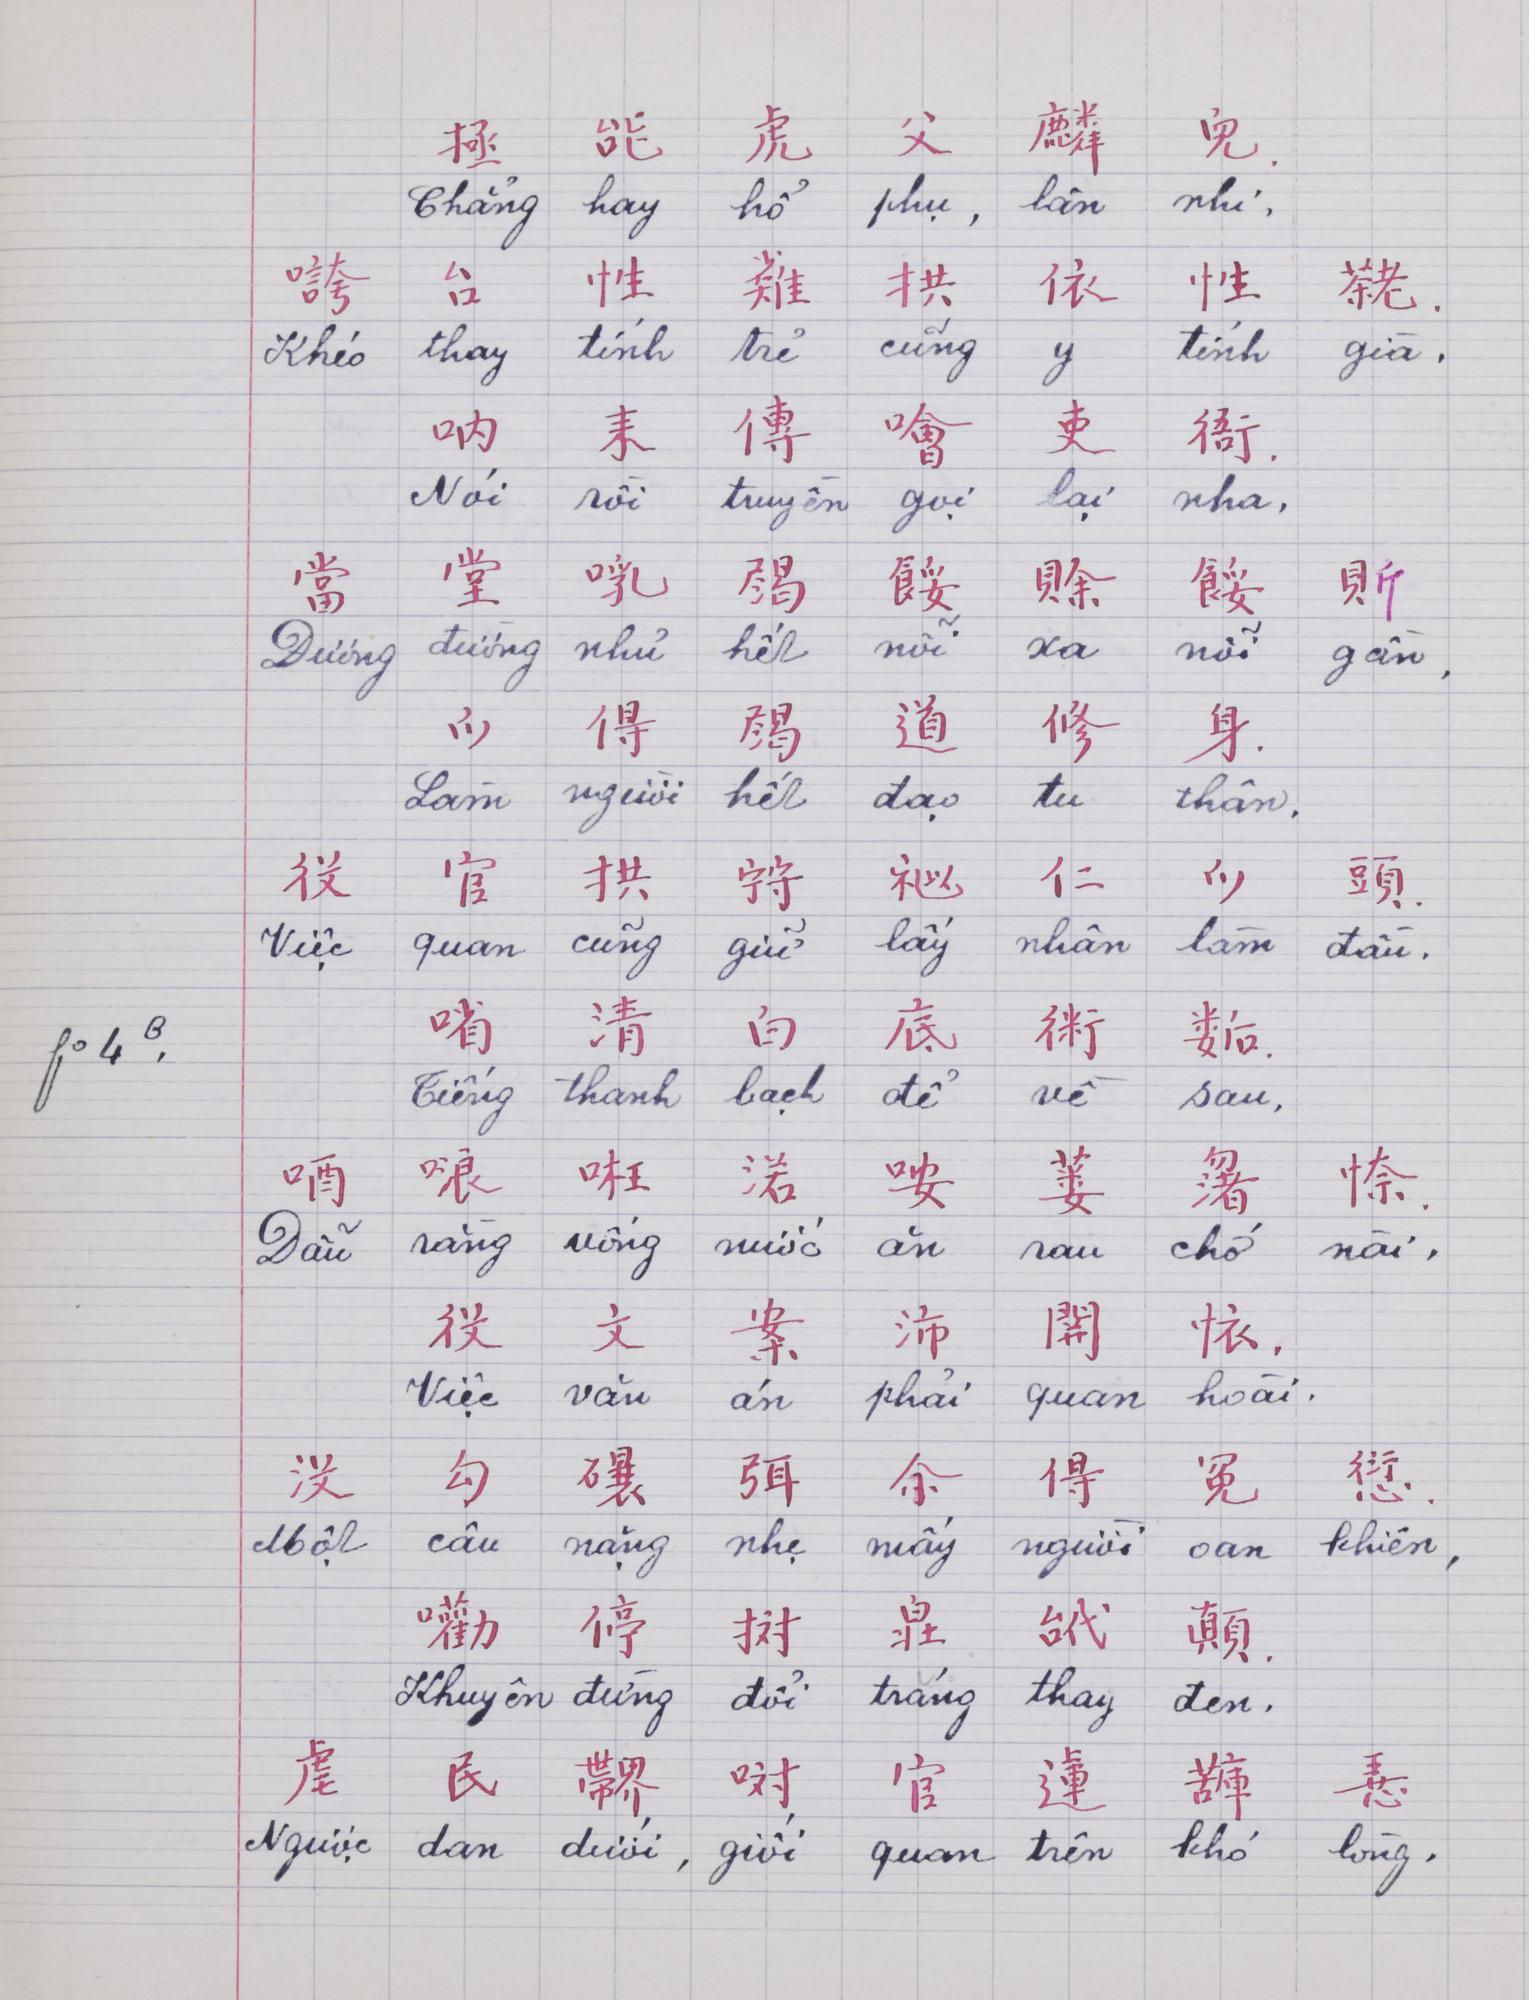 極 能 虎 父 麟 兒.
Chẳng hay hổ phụ, lân nhi.
誇 台 性 拱 依 性.
Khéo thay tính trẻ cũng y tính già.
吶 耒 傳 噲 吏 衙.
Nói rồi truyền gọi lại nha,
當 堂 𠴍 餒 賒 餒
Đương đường nhủ hết nỗi xa nỗi gần,
𪜀 得 道 修 身.
Làm người hết đạo tu thân,
役 官 拱 仁 頭.
Việc quan cũng giữ lấy nhân làm đầu.
㗂 清 白 底 術 𢖖.
Tiếng thanh bạch để về sau,
哂 哴 渃 咹 蔞 渚 㮈.
Dẫu rằng uống nước ăn rau chớ nài.
役 文 案 沛 関 怀.
Việc văn án phải quan hoài.
没 勾 弭 余 得 冤 愆.
Một câu nặng nhẹ mấy người oan khiên,
勸 停 㧣 𤽸 台 顛.
Khuyên đừng đổi trắng thay đen.
虐 民 𠁑 官 𨕭 𢚸
Ngược dan dưới, giối quan trên khó lòng.
fº 4 B.